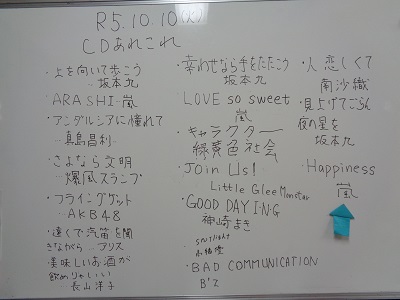 R5.10.10(火)
CDあれこれ
・上を向いて歩こう
坂本九
ARASHI-嵐
・アンダルシアに憧れて
真島昌利
・さよなら文明
爆風スランプ
・フライングゲット
AKB48
・遠くで汽笛を聞
きながら アリス
・美味しいお酒が
飲めりゃいい
長山洋子
・幸わせなら手をたたこう
坂本九
LOVE so sweet
嵐
・キャラクター
緑黄色社会
・Join Us!
Little Glee Monster
・GOOD DAY ING
神崎まき
・BAD COMMUNICATION
B'z
・人恋しくて
南沙織
・見上げてごらん
夜の星を
坂本九
・Happiness
嵐